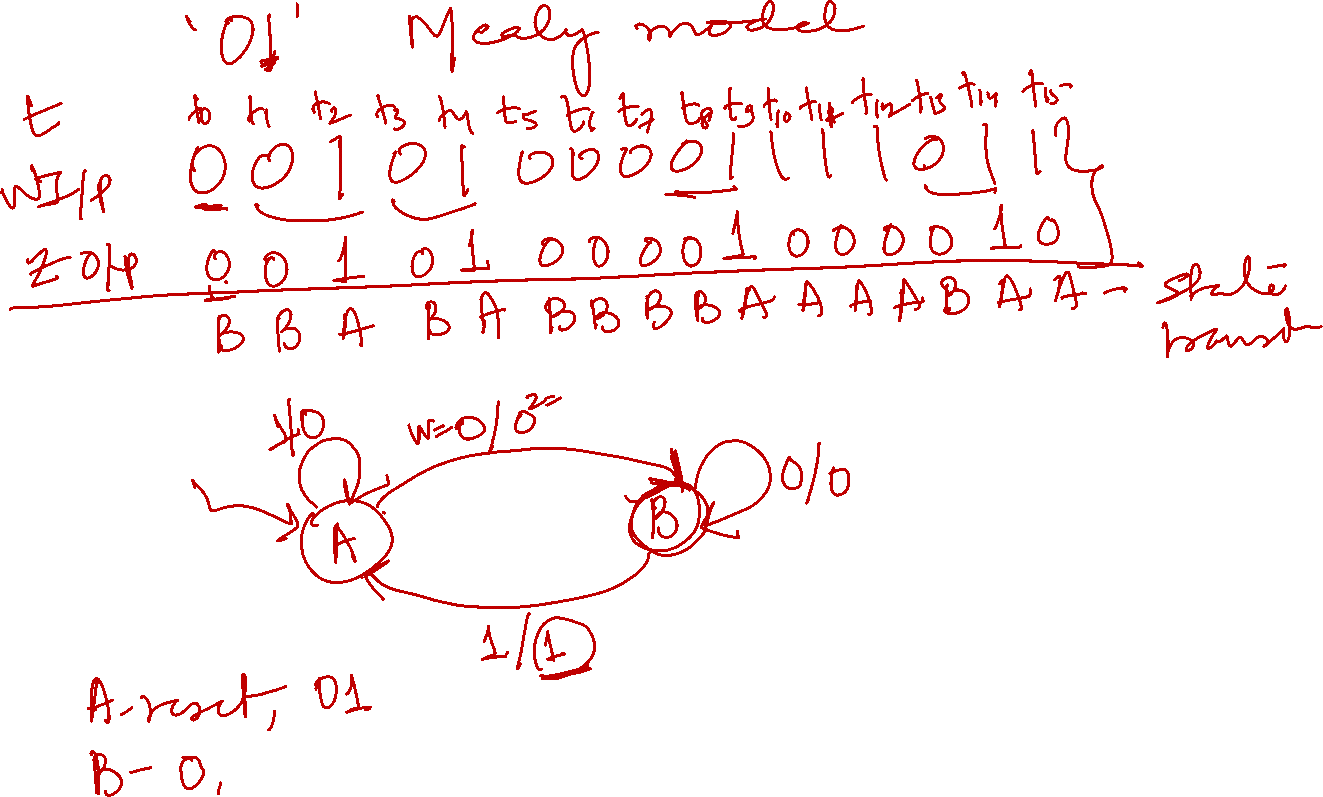 '01' Mealy model
t t0 t1 t2 t3 t4 t5 t6 t7 t8 t9 t10 t11 t12 t13 t14 t15
W I/p 0 0 1 0 1 0 0 0 0 1 1 1 1 0 1 1
Z O/p 0 0 1 0 1 0 0 0 0 1 0 0 0 0 1 0
B B A B A B B B B A A A A B A A - state
1/0 w=0/0
0/0
A B
1/1
A-reset, 01
B- 0,